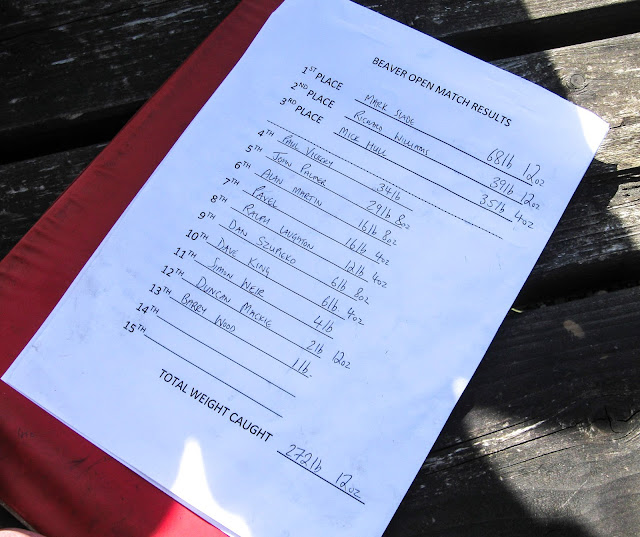 BEAVER OPEN MATCH RESULTS
1ST PLACE MARK SLADE 68lb 12oz
2ND PLACE RICHARD WILLIAMS 39lb 12oz
3RD PLACE MICK HULL 35lb 4oz
4TH PAUL VICKERY 34lb
5TH JOHN PALMER 29lb 8oz
6TH ALAN MARTIN 16lb 8oz
7TH PAVEL 16lb 4oz
8TH RALPH LAUGHTON 12lb 4oz
9TH DAN 6lb 8oz
10TH DAVE KING 6lb 4oz
11TH SIMON WEIR 4lb
12TH DUNCAN MACKIE 2lb 12oz
13TH BARRY WOOD 1lb
14TH
15TH
TOTAL WEIGHT CAUGHT 272lb 12oz